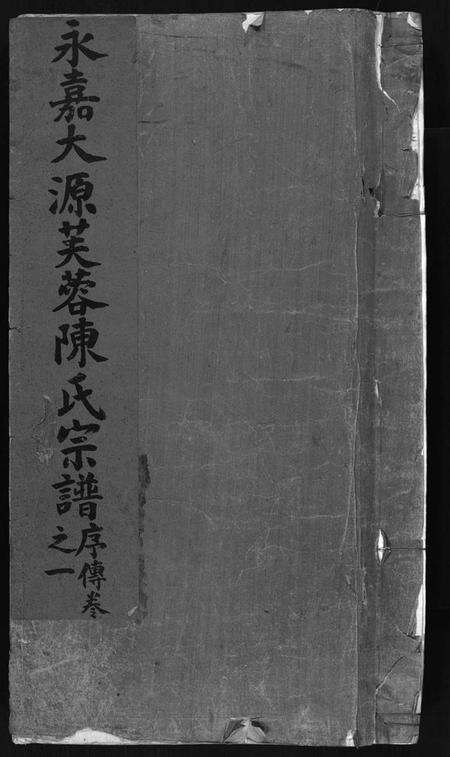 永嘉大源芙蓉陳氏宗譜
序傳卷
之一